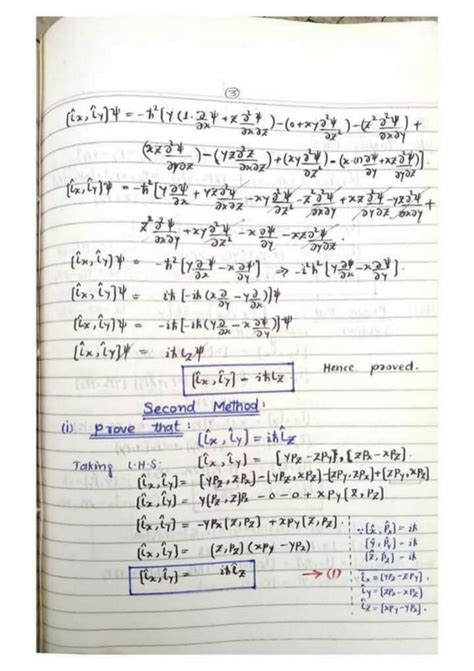 ③
[l̂x, l̂y]ψ = -ħ²[y(1·∂ψ/∂x + z ∂²ψ/∂x∂z) - (0 + xy ∂²ψ/∂z²) - (z² ∂²ψ/∂x∂y) +
(xz ∂²ψ/∂y∂z) - (yz ∂²z/∂x∂z) + (xy ∂²ψ/∂z²) - (x·(1)∂ψ/∂y + xz ∂²ψ/∂y∂z)].
[l̂x, l̂y]ψ = -ħ²[y ∂ψ/∂x + yz ∂²ψ/∂x∂z - xy ∂²ψ/∂z² - z² ∂²ψ/∂x∂y + xz ∂²ψ/∂y∂z - yz ∂²ψ/∂x∂z +
z² ∂²ψ/∂x∂y + xy ∂²ψ/∂z² - x ∂ψ/∂y - xz ∂²ψ/∂y∂z
[l̂x, l̂y]ψ = -ħ²[y ∂ψ/∂x - x ∂ψ/∂y] ⇒ -i²ħ²[y ∂ψ/∂x - x ∂ψ/∂y].
[l̂x, l̂y]ψ = iħ[-iħ(x ∂/∂y - y ∂/∂x)]ψ
[l̂x, l̂y]ψ = -iħ[-iħ(y ∂ψ/∂x - x ∂ψ/∂y)]ψ
[l̂x, l̂y]ψ = iħ l̂zψ
[l̂x, l̂y] = iħ l̂z
Hence proved.
Second Method:
(i) Prove that: [l̂x, l̂y] = iħ l̂z
Taking L.H.S: [l̂x, l̂y] = [yPz - zPy, zPx - xPz]
[l̂x, l̂y] = [yPz, zPx] - [yPz, xPz] - [zPy, zPx] + [zPy, xPz]
[l̂x, l̂y] = y[Pz, z]Px - 0 - 0 + xPy[z, Pz]
[l̂x, l̂y] = -yPx[z, Pz] + xPy[z, Pz]
[l̂x, l̂y] = [z, Pz](xPy - yPx)
[l̂x, l̂y] = iħ l̂z → (1)
∵ [x̂, P̂x] = iħ
[ŷ, P̂y] = iħ
[ẑ, P̂z] = iħ
∵ l̂x = [yPz - zPy].
l̂y = [zPx - xPz]
l̂z = [xPy - yPx].